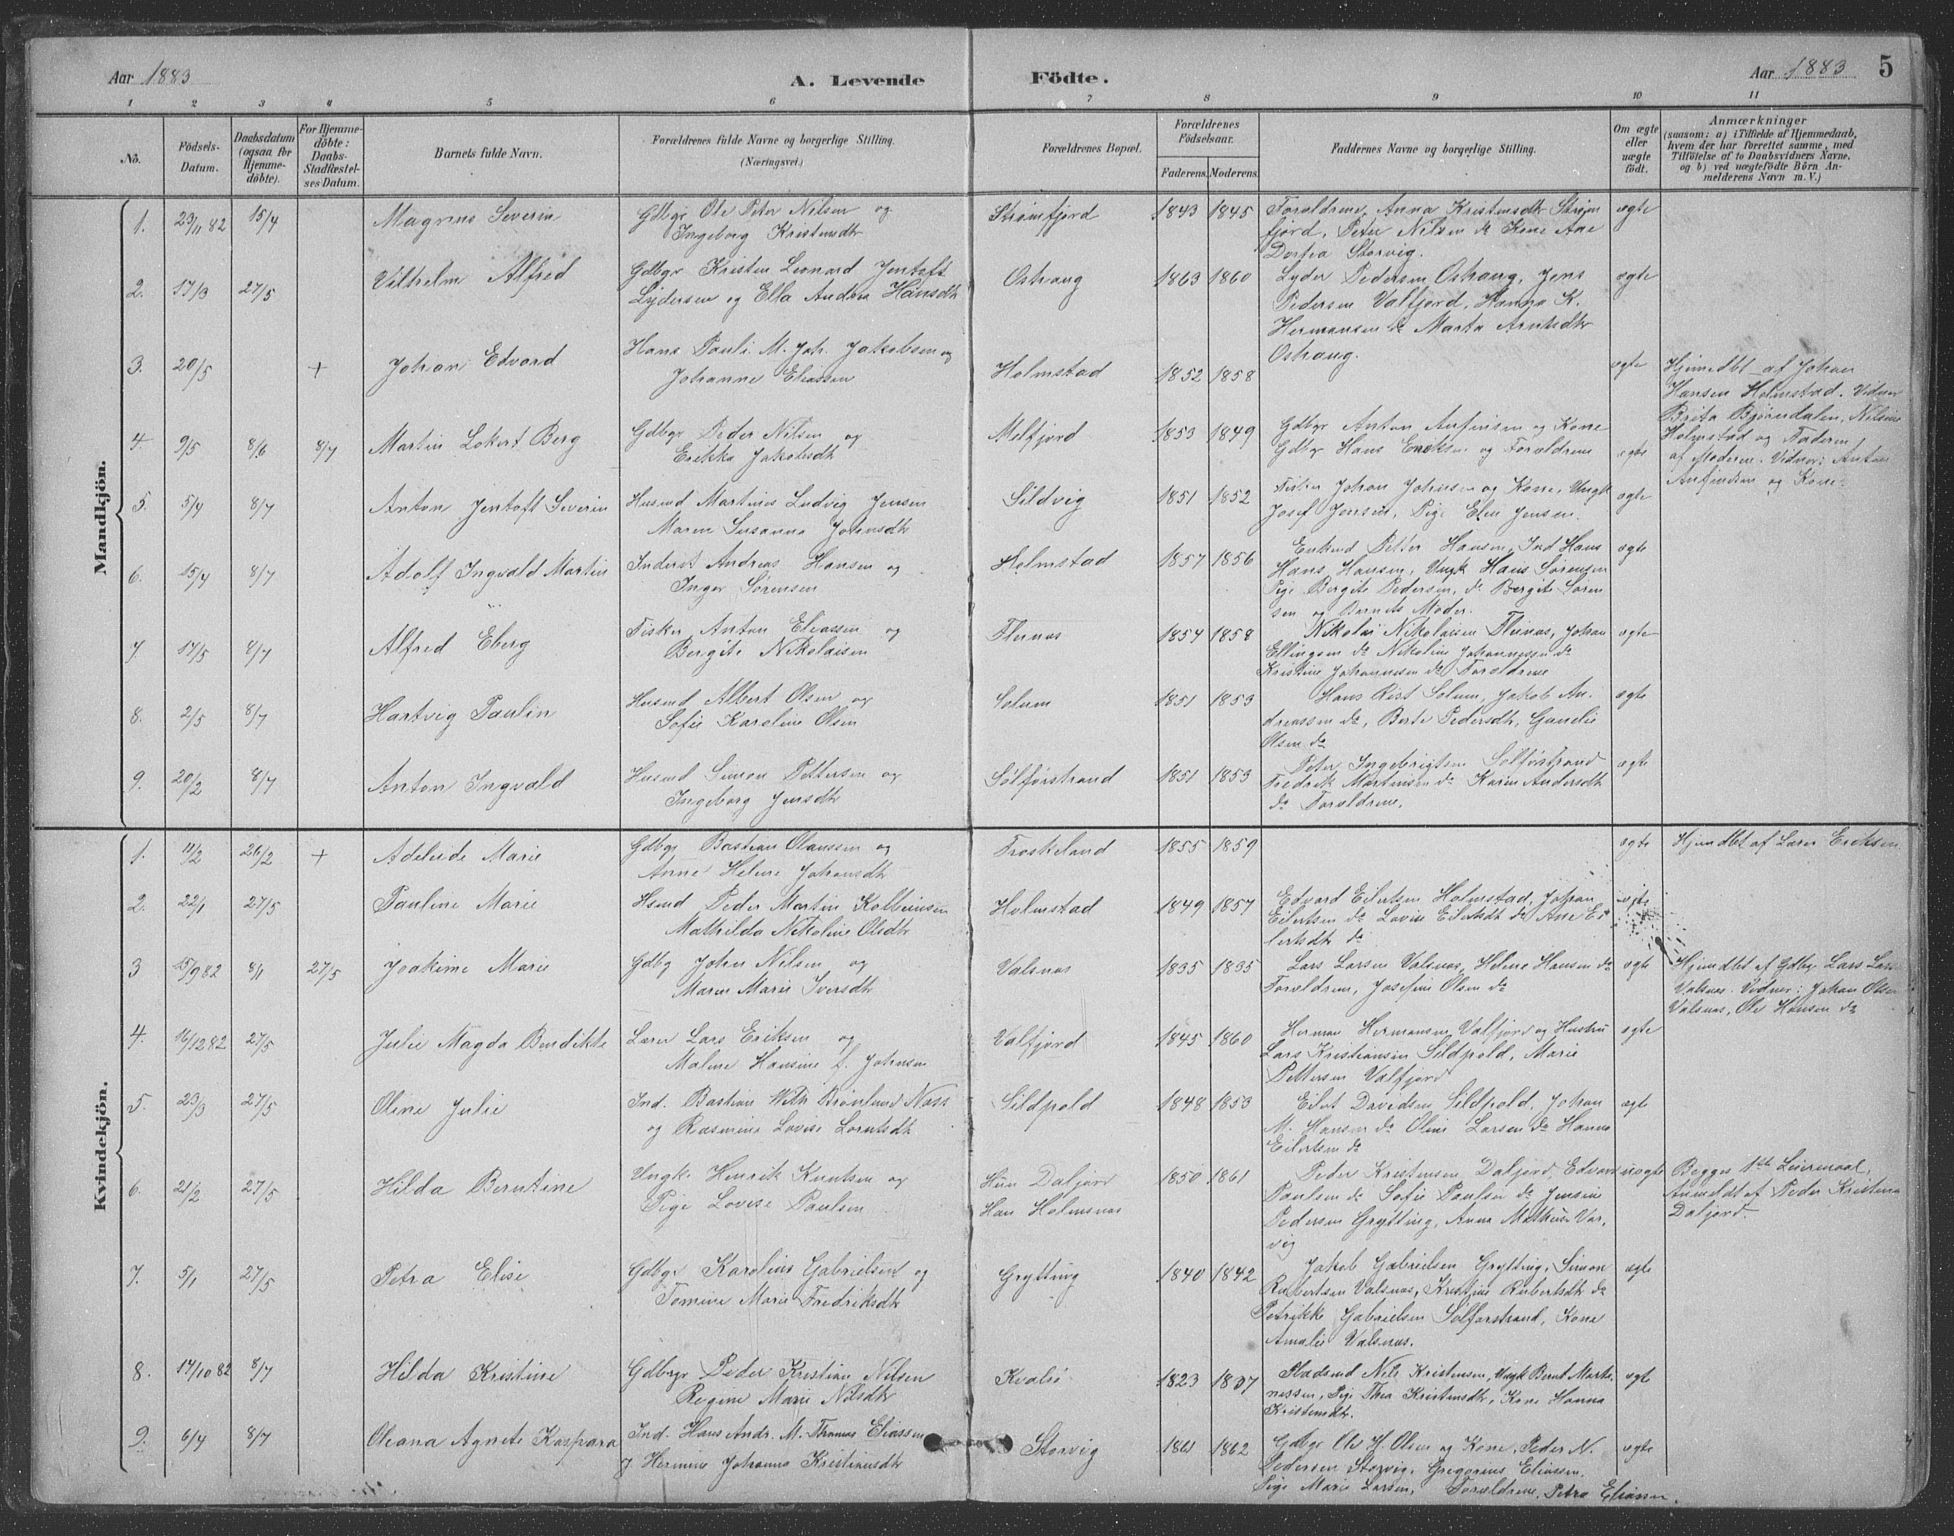 Aar 1883
A. Levende Födte.
Aar 1883 5
1 2 3 4 5 6 7 8 9 10 11
No. Födsels-Datum. Daabsdatum (ogsaa for Hjemme-döbte). For Hjemme-döbte: Daabs-Stadfæstel-ses Datum. Barnets fulde Navn. Forældrenes fulde Navne og borgerlige Stilling. (Næringsvei.) Forældrenes Bopæl. Forældrenes Födselsaar. Faderens. Moderens. Faddernes Navne og borgerlige Stilling. Om ægte eller uægte födt. Anmærkninger (saasom: a) i Tilfælde af Hjemmedaab, hvem der har forrettet samme, med Tilföielse af to Daabsvidners Navne, og b) ved uægtefödte Börn An-melderens Navn m. V.)
Mandkjön.
1. 23/11 82 15/4 Magnus Severin Gdbgr Ole Peter Nilsen og Strømfjord 1843 1845 Forældrene, Anna Kristensdtr Strøm ægte
Ingeborg Kristensdtr fjord, Peter Nilsen do Kone Ane
Dortea Storvig.
2. 17/3 27/5 Vilhelm Alfred Gdbgr Kristen Leonard Jentoft Oshaug 1863 1860 Lyder Pedersen Oshaug, Jens ægte
Lydersen og Ella Andrea Hansdtr Pedersen Valfjord, Hanna K.
Hermansen do Marta Arntsdtr
Oshaug.
3. 20/5 + Johan Edvard Hans Pauli M. Joh. Jakobsen og Holmstad 1852 1858 ægte Hjemdbt af Johan
Johanne Eliassen Hansen Holmstad. Vidner
Brita Bjørndalen, Nilsine
Holmstad og Faderen
4 9/5 8/6 8/7 Martin Lokert Berg Gdbgr Peder Nilsen og Melfjord 1853 1849 Gdbgr Anton Anfinsen og Kone ægte af Moderen. Vidner: Anton
Erikka Jakobsdtr Gdbgr Hans Eriksen og Forældrene Anfindsen og Kone
5. 5/4 8/7 Anton Jentoft Severin Husmd Martines Ludvig Jensen Sildvig 1851 1852 Fisker Johan Johnsen og Kone, Ungk ægte
Maren Susanna Johnsdtr Josef Jensen, Pige Elen Jensen.
6. 15/4 8/7 Adolf Ingvald Martin Inderst Andreas Hansen og Holmstad 1857 1856 Enkmd Petter Hansen, Ind Hans ægte
Inger Sørensen Hans Hansen, Ungk Hans Sørensen
Pige Bergite Pedersen, do Bergite Søren
sen og Barnets Moder.
7. 17/5 8/7 Alfred Eberg Fisker Anton Eliassen og Flernæs 1854 1858 Nikolai Nikolaisen Flernæs, Johan ægte
Bergite Nikolaisen Ellingsen do Nikoline Johannessen do
Kristine Johannesen do Forældrene
8. 2/5 8/7 Hartvig Paulin Husmd Albert Olsen og Solum 1851 1853 Hans Rist Solum, Jakob An. ægte
Sofie Karoline Olsen dreassen do, Berte Pedersdtr, Gunelie
Olsen do
9. 20/2 8/7 Anton Ingvald Husmd Simon Pettersen og Sølførstrand 1851 1853 Peter Ingebrigtsen Sølførstrand ægte
Ingeborg Jensdtr Fredrik Martinsen do Karin Andersdtr
do Forældrene.
Kvindekjön.
1. 11/2 26/2 + Adeleide Marie Gdbgr Bastian Olaussen og Troskeland 1855 1859 ægte Hjemdbt af Lærer Eriksen
Anne Helene Johansdtr
2. 22/1 27/5 Pauline Marie Hsmd Peder Martin Kolbeinsen Holmstad 1849 1857 Edvard Eilertsen Holmstad, Johan ægte
Mathilda Nikoline Olsdtr Eilertsen do Lovise Eilertsdt do Ane Ei
lertsdtr do
3 15/9 82 8/11 27/5 Joakime Marie Gdbg Johan Nilsen og Valsnæs 1835 1835 Lars Larsen Valsnæs, Helene Hansen do ægte Hjemdbt af Gdbgr Lars Lars
Maren Marie Iversdtr Forældrene, Josefine Olsen do Valsnæs. Vidner: Johan Olsen
Valsnæs, Ole Hansen do
4. 16/12 82 27/5 Julie Magda Bendikte Lærer Lars Eriksen og Valfjord 1845 1860 Herman Hermansen Valfjord og Hustru ægte
Malene Hansine f. Johnsen Lars Kristiansen Sildpold, Marie
Pettersen Valfjord
5. 23/3 27/5 Oline Julie Ind. Bastian With Brønlund Næss Sildpold 1848 1853 Eilert Davidsen Sildpold, Johan ægte
og Rasmine Lovise Lorntsdtr M. Hansen do Oline Larsen do Hanna
Eilertsen do
6. 21/2 27/5 Hilda Berntine Ungk. Henrik Knutsen og Hun Daljord 1850 1861 Peder Kristensen Daljord, Edvard uægte Begges 1ste Leiermaal.
Pige Lovise Paulsen Han Holmsnæs Paulsen do Sofie Paulsen do Jensine Anmeldt af Peder Kristensen
Pedersen Grytting, Anne Mathisen Vor, Daljord.
vig
7. 5/1 27/5 Petra Elise Gdbgr Karolius Gabrielsen og Grytting 1840 1842 Jakob Gabrielsen Grytting, Simon ægte
Tomine Marie Fredriksdtr Robertsen Valsnæs, Kristine Robertsdtr do
Petrikke Gabrielsen Sølførstrand, Kone
Amalie Valsnæs.
8. 17/10 82 8/7 Hilda Kristine Gdbgr Peder Kristian Nilsen Kvalø 1823 1807 Pladsmd Nils Kristensen, Ungk Bernt Marti- ægte
Regine Marie Nilsdtr nessen, Pige Thea Kristensdtr, Kone Hanna
Kristensdtr.
9. 6/4 8/7 Oleana Agnete Kaspara Ind. Hans Andr. M. Thomas Eliassen Storvig 1861 1862 Gdbgr Ole H. Olsen og Kone, Peder N. ægte
og Hermine Johanna Kristiansdtr Pedersen Storvig, Gregorius Eliassen.
Pige Marie Larsen, Forældrene, Petra Eliassen.